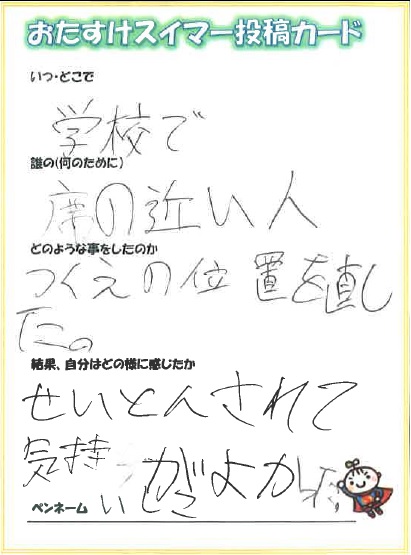 おたすけスイマー投稿カード
いつ・どこで
学校で
誰の(何のために)
席の近い人
どのような事をしたのか
つくえの位置を直し
た。
結果、自分はどの様に感じたか
せいとんされて
気持 がよか
ペンネーム